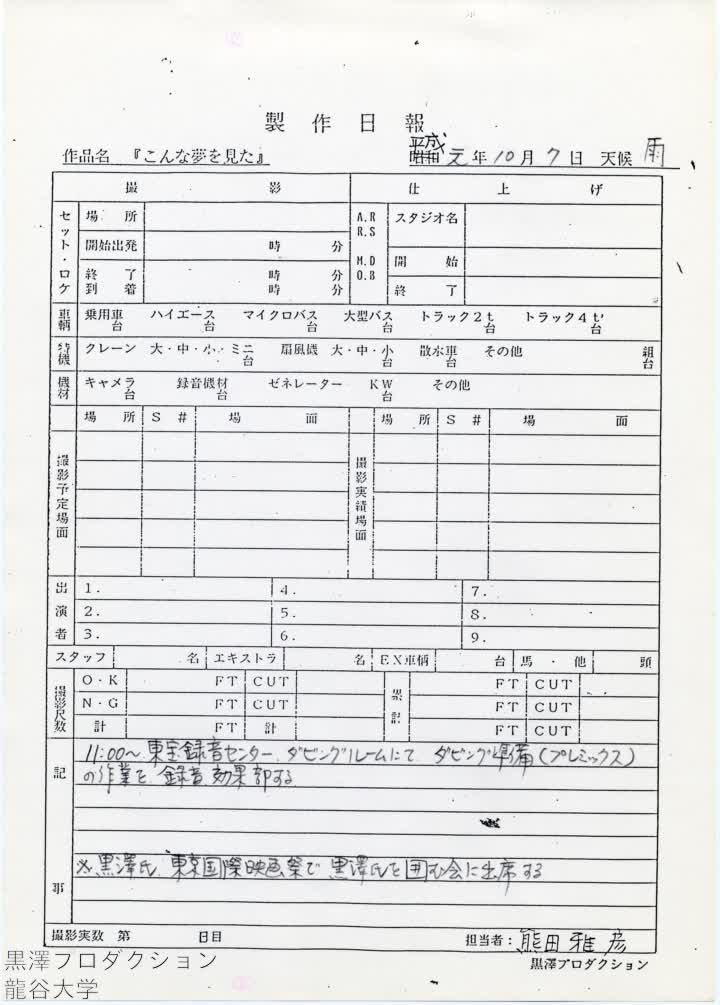 製作日報
作品名 『こんな夢を見た』 平成 昭和 元年10月7日 天候 雨
撮影 仕上げ
セット・ロケ 場所 A.R R.S スタジオ名
開始出発 時 分
M.D O.B 開始
終了 時 分
到着 時 分 終了
車輌 乗用車 台 ハイエース 台 マイクロバス 台 大型バス 台 トラック2t 台 トラック4t 台
特機 クレーン 大・中・小・ミニ 台 扇風機 大・中・小 台 散水車 台 その他 組 台
機材 キャメラ 台 録音機材 台 ゼネレーター KW 台 その他
場所 S # 場面 場所 S # 場面
撮影予定場面 撮影実績場面
出演者 1. 4. 7.
2. 5. 8.
3. 6. 9.
スタッフ 名 エキストラ 名 EX車輌 台 馬・他 頭
撮影尺数 O・K FT CUT 累計 FT CUT
N・G FT CUT FT CUT
計 FT 計 FT CUT
記事
11:00〜 東宝録音センター、ダビングルームにて、ダビング準備(プレミックス)
の作業を 録音、効果部する
※黒澤氏、東京国際映画祭で 黒澤氏を囲む会に出席する
撮影実数 第 日目 担当者: 熊田雅彦
黒澤プロダクション
黒澤プロダクション
龍谷大学